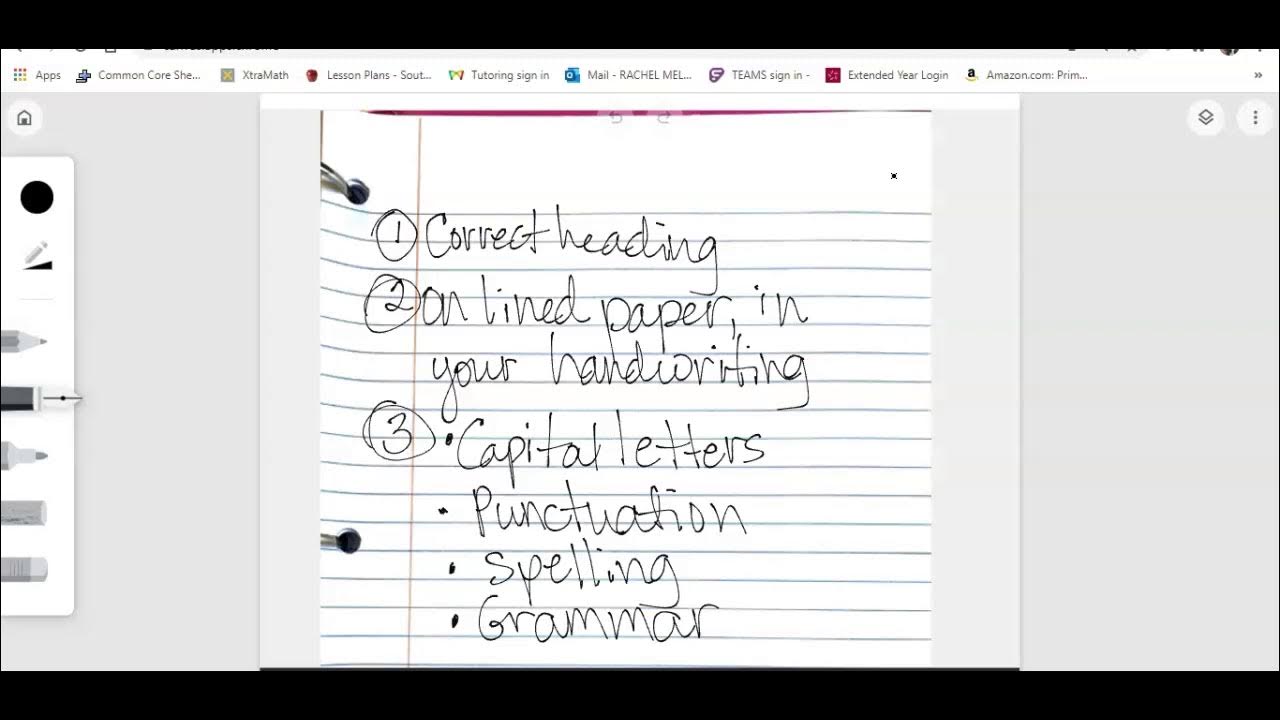 Apps Common Core She... XtraMath Lesson Plans - Sout... Tutoring sign in Mail - RACHEL MEL... TEAMS sign in - Extended Year Login Amazon.com: Prim... »
① Correct heading
② on lined paper, in
your handwriting
③ • Capital letters
• Punctuation
• Spelling
• Grammar